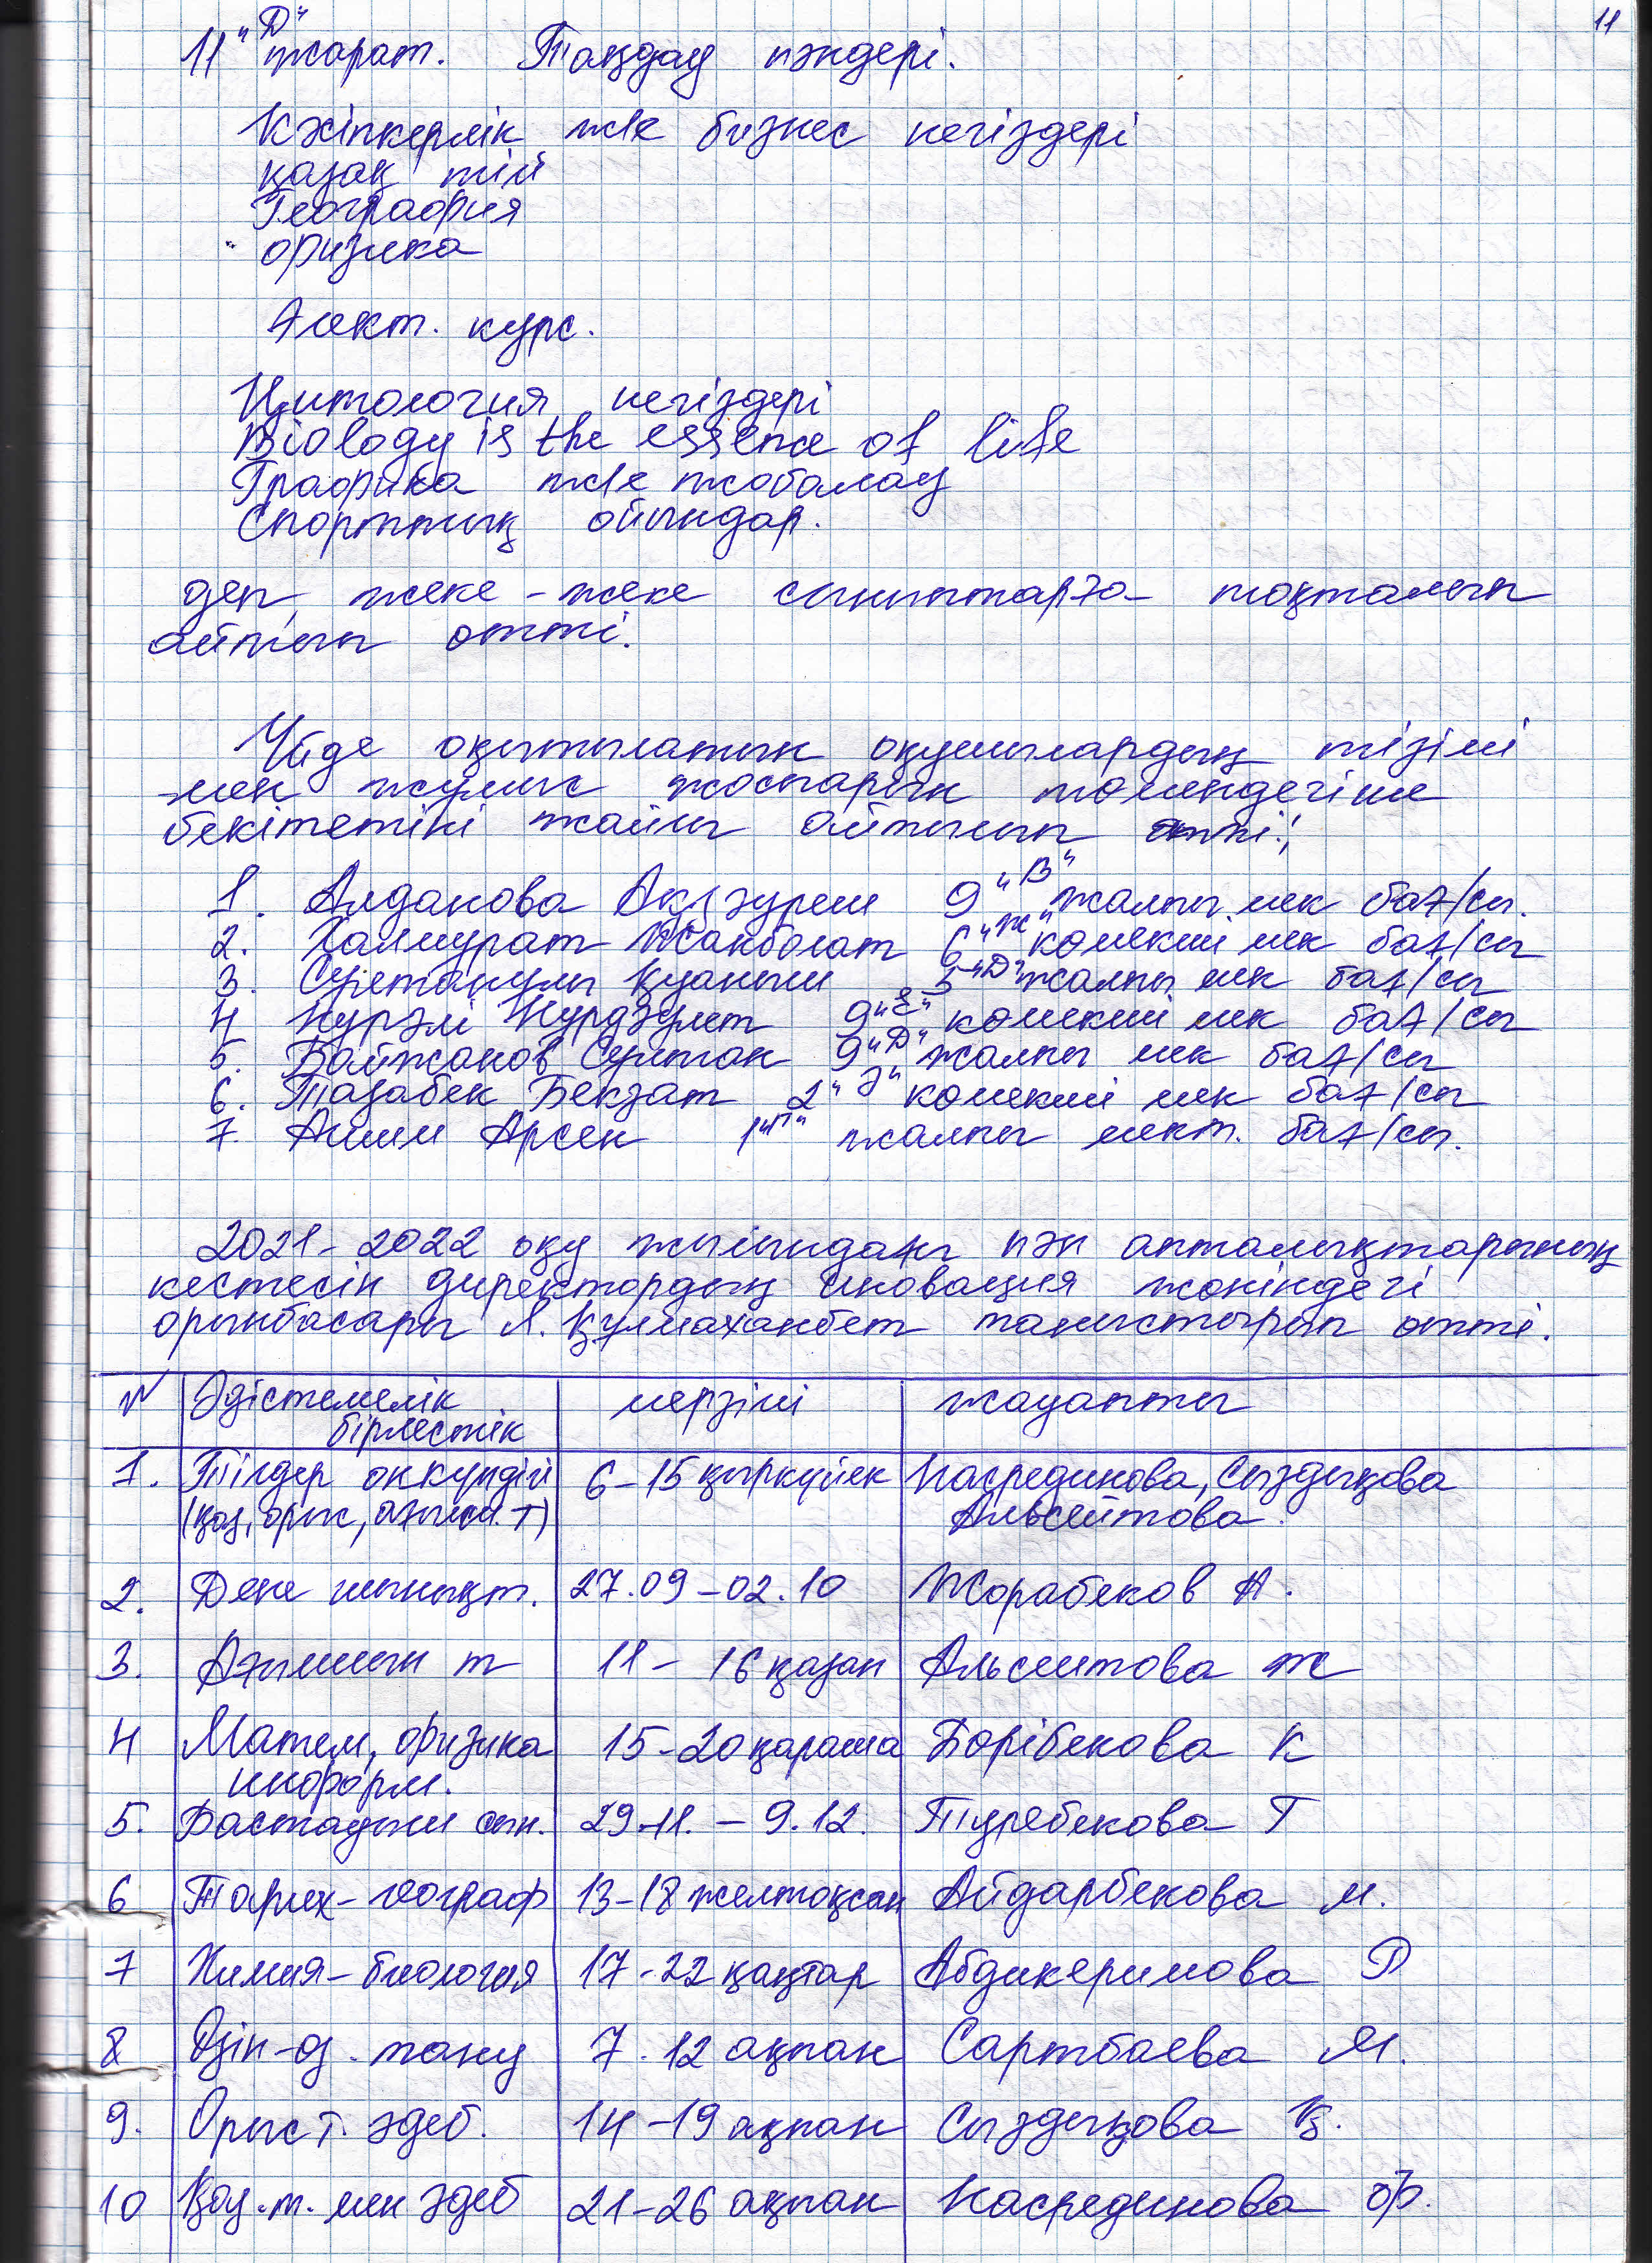 11
11 "Д" жарат. Таңдау пәндері.
Кәсіпкерлік ж/е бизнес негіздері
қазақ тілі
География
физика
Элект. курс.
Цитология негіздері
Biology is the essence of life
Графика ж/е жобалау
Спорттық ойындар.
деп, жеке-жеке сыныптарға тоқталып
айтып өтті.
Үйде оқытылатын оқушылардың тізімі
мен жұмыс жоспарын төмендегіше
бекітетіні жайлы айтылып өтті:
1. Алданова Ақзүрем 9 "В" жалпы мек бағ/сы.
2. Халмурат Жанболат 6 "Ж" көмекші мек бағ/сы
3. Сұлтанұлы Қуаныш 5 "Д" жалпы мек бағ/сы
4 Нұрәлі Нұрдәулет 9 "Е" көмекші мек бағ/сы
5. Байжанов Сұлтан 9 "Д" жалпы мек бағ/сы
6. Тазабек Бекзат 2 "Ә" көмекші мек бағ/сы
7. Әлім Арсен 1 "Г" жалпы мект. бағ/сы.
2021-2022 оқу жылындағы пән апталықтарының
кестесін директордың иновация жөніндегі
орынбасары Л. Құлмаханбет таныстырып өтті.
№ Әдістемелік бірлестік мерзімі жауапты
1. Тілдер онкүндігі 6-15 қыркүйек Насрединова, Сыздықова
(қаз, орыс, ағылш. т) Альсейтова.
2. Дене шынықт. 27.09-02.10 Жорабеков А.
3. Ағылшын т 11-16 қазан Альсеитова Ж
4 Матем, физика 15-20 қараша Бөрібекова К
информ.
5. Бастауыш сын. 29.11.-9.12. Туребекова Г
6 Тарих-географ 13-18 желтоқсан Айдарбекова М.
7 Химия-биология 17-22 қаңтар Абдикеримова Р
8 Өзін-өз. тану 7-12 ақпан Сартбаева М.
9. Орыс т. әдеб. 14-19 ақпан Сыздықова Қ.
10 Қаз.т. мен әдеб 21-26 ақпан Насрединова Ф.